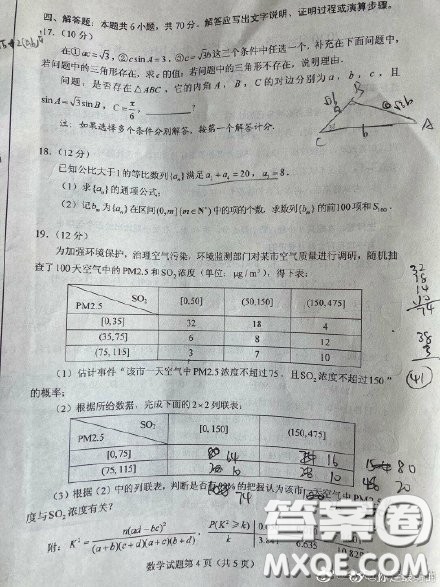 四、解答题：本题共6小题，共70分。解答应写出文字说明、证明过程或演算步骤。
17.（10分）
在①ac=√3，②csinA=3，③c=√3b这三个条件中任选一个，补充在下面问题中，
若问题中的三角形存在，求c的值；若问题中的三角形不存在，说明理由.
问题：是否存在△ABC，它的内角A，B，C的对边分别为a，b，c，且
sinA=√3sinB，C=π/6，________？
注：如果选择多个条件分别解答，按第一个解答计分.
B
C b A
18.（12分）
已知公比大于1的等比数列{aₙ}满足a₂+a₄=20，a₃=8.
（1）求{aₙ}的通项公式；
（2）记bₘ为{aₙ}在区间(0,m](m∈N*)中的项的个数，求数列{bₘ}的前100项和S₁₀₀.
19.（12分）
为加强环境保护，治理空气污染，环境监测部门对某市空气质量进行调研，随机抽
查了100天空气中的PM2.5和SO₂浓度（单位：μg/m³），得下表：
SO₂ PM2.5 [0,50] (50,150] (150,475]
[0,35] 32 18 4
(35,75] 6 8 12
(75,115] 3 7 10
32
18
14
74
38
3
41
（1）估计事件“该市一天空气中PM2.5浓度不超过75，且SO₂浓度不超过150”
的概率；
（2）根据所给数据，完成下面的2×2列联表：
SO₂ PM2.5 [0,150] (150,475]
[0,75] 64 16 80
(75,115] 10 10 20
74
（3）根据（2）中的列联表，判断是否有 的把握认为该市一天空气中PM2.5
度与SO₂浓度有关？
附：K²=n(ad-bc)²/(a+b)(c+d)(a+c)(b+d)，
P(K²≥k) 0.0
k 3.841 6.635 10.828
数学试题第4页（共5页）
答案圈
MXQE.COM